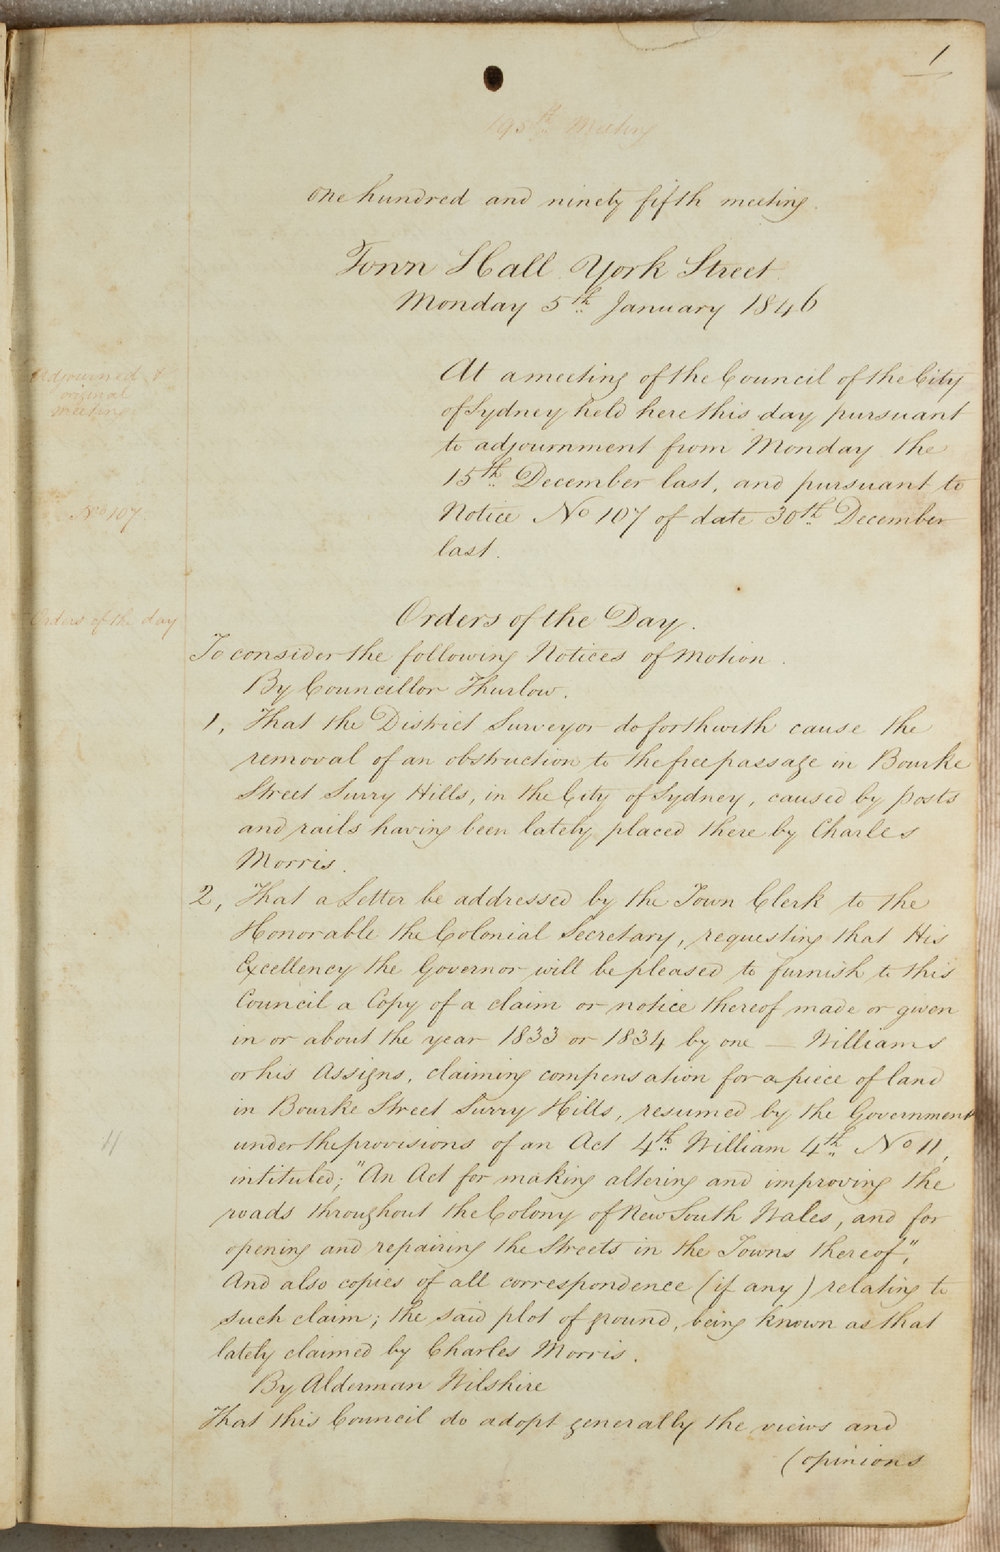 1
195th Meeting
One hundred and ninety fifth meeting.
Town Hall York Street.
Monday 5th January 1846
Adjourned &
original
meeting
At a meeting of the Council of the City
of Sydney held here this day pursuant
to adjournment from Monday the
15th December last, and pursuant to
No 107
Notice No 107 of date 30th December
last.
Orders of the day
Orders of the Day.
To consider the following Notices of Motion.
By Councillor Thurlow.
1, That the District Surveyor do forthwith cause the
removal of an obstruction to the free passage in Bourke
Street Surry Hills, in the City of Sydney, caused by posts
and rails having been lately placed there by Charles
Morris.
2, That a Letter be addressed by the Town Clerk to the
Honorable the Colonial Secretary, requesting that His
Excellency the Governor will be pleased to furnish to this
Council a Copy of a claim or notice thereof made or given
in or about the year 1833 or 1834 by one — Williams
or his Assigns, claiming compensation for a piece of land
in Bourke Street Surry Hills, resumed by the Government
under the provisions of an Act 4th William 4th No 11,
intituled; "An Act for making altering and improving the
roads throughout the Colony of New South Wales, and for
opening and repairing the Streets in the Towns thereof,"
And also copies of all correspondence (if any) relating to
such claim; the said plot of ground, being known as that
lately claimed by Charles Morris.
By Alderman Wilshire
That this Council do adopt generally the views and
(opinions